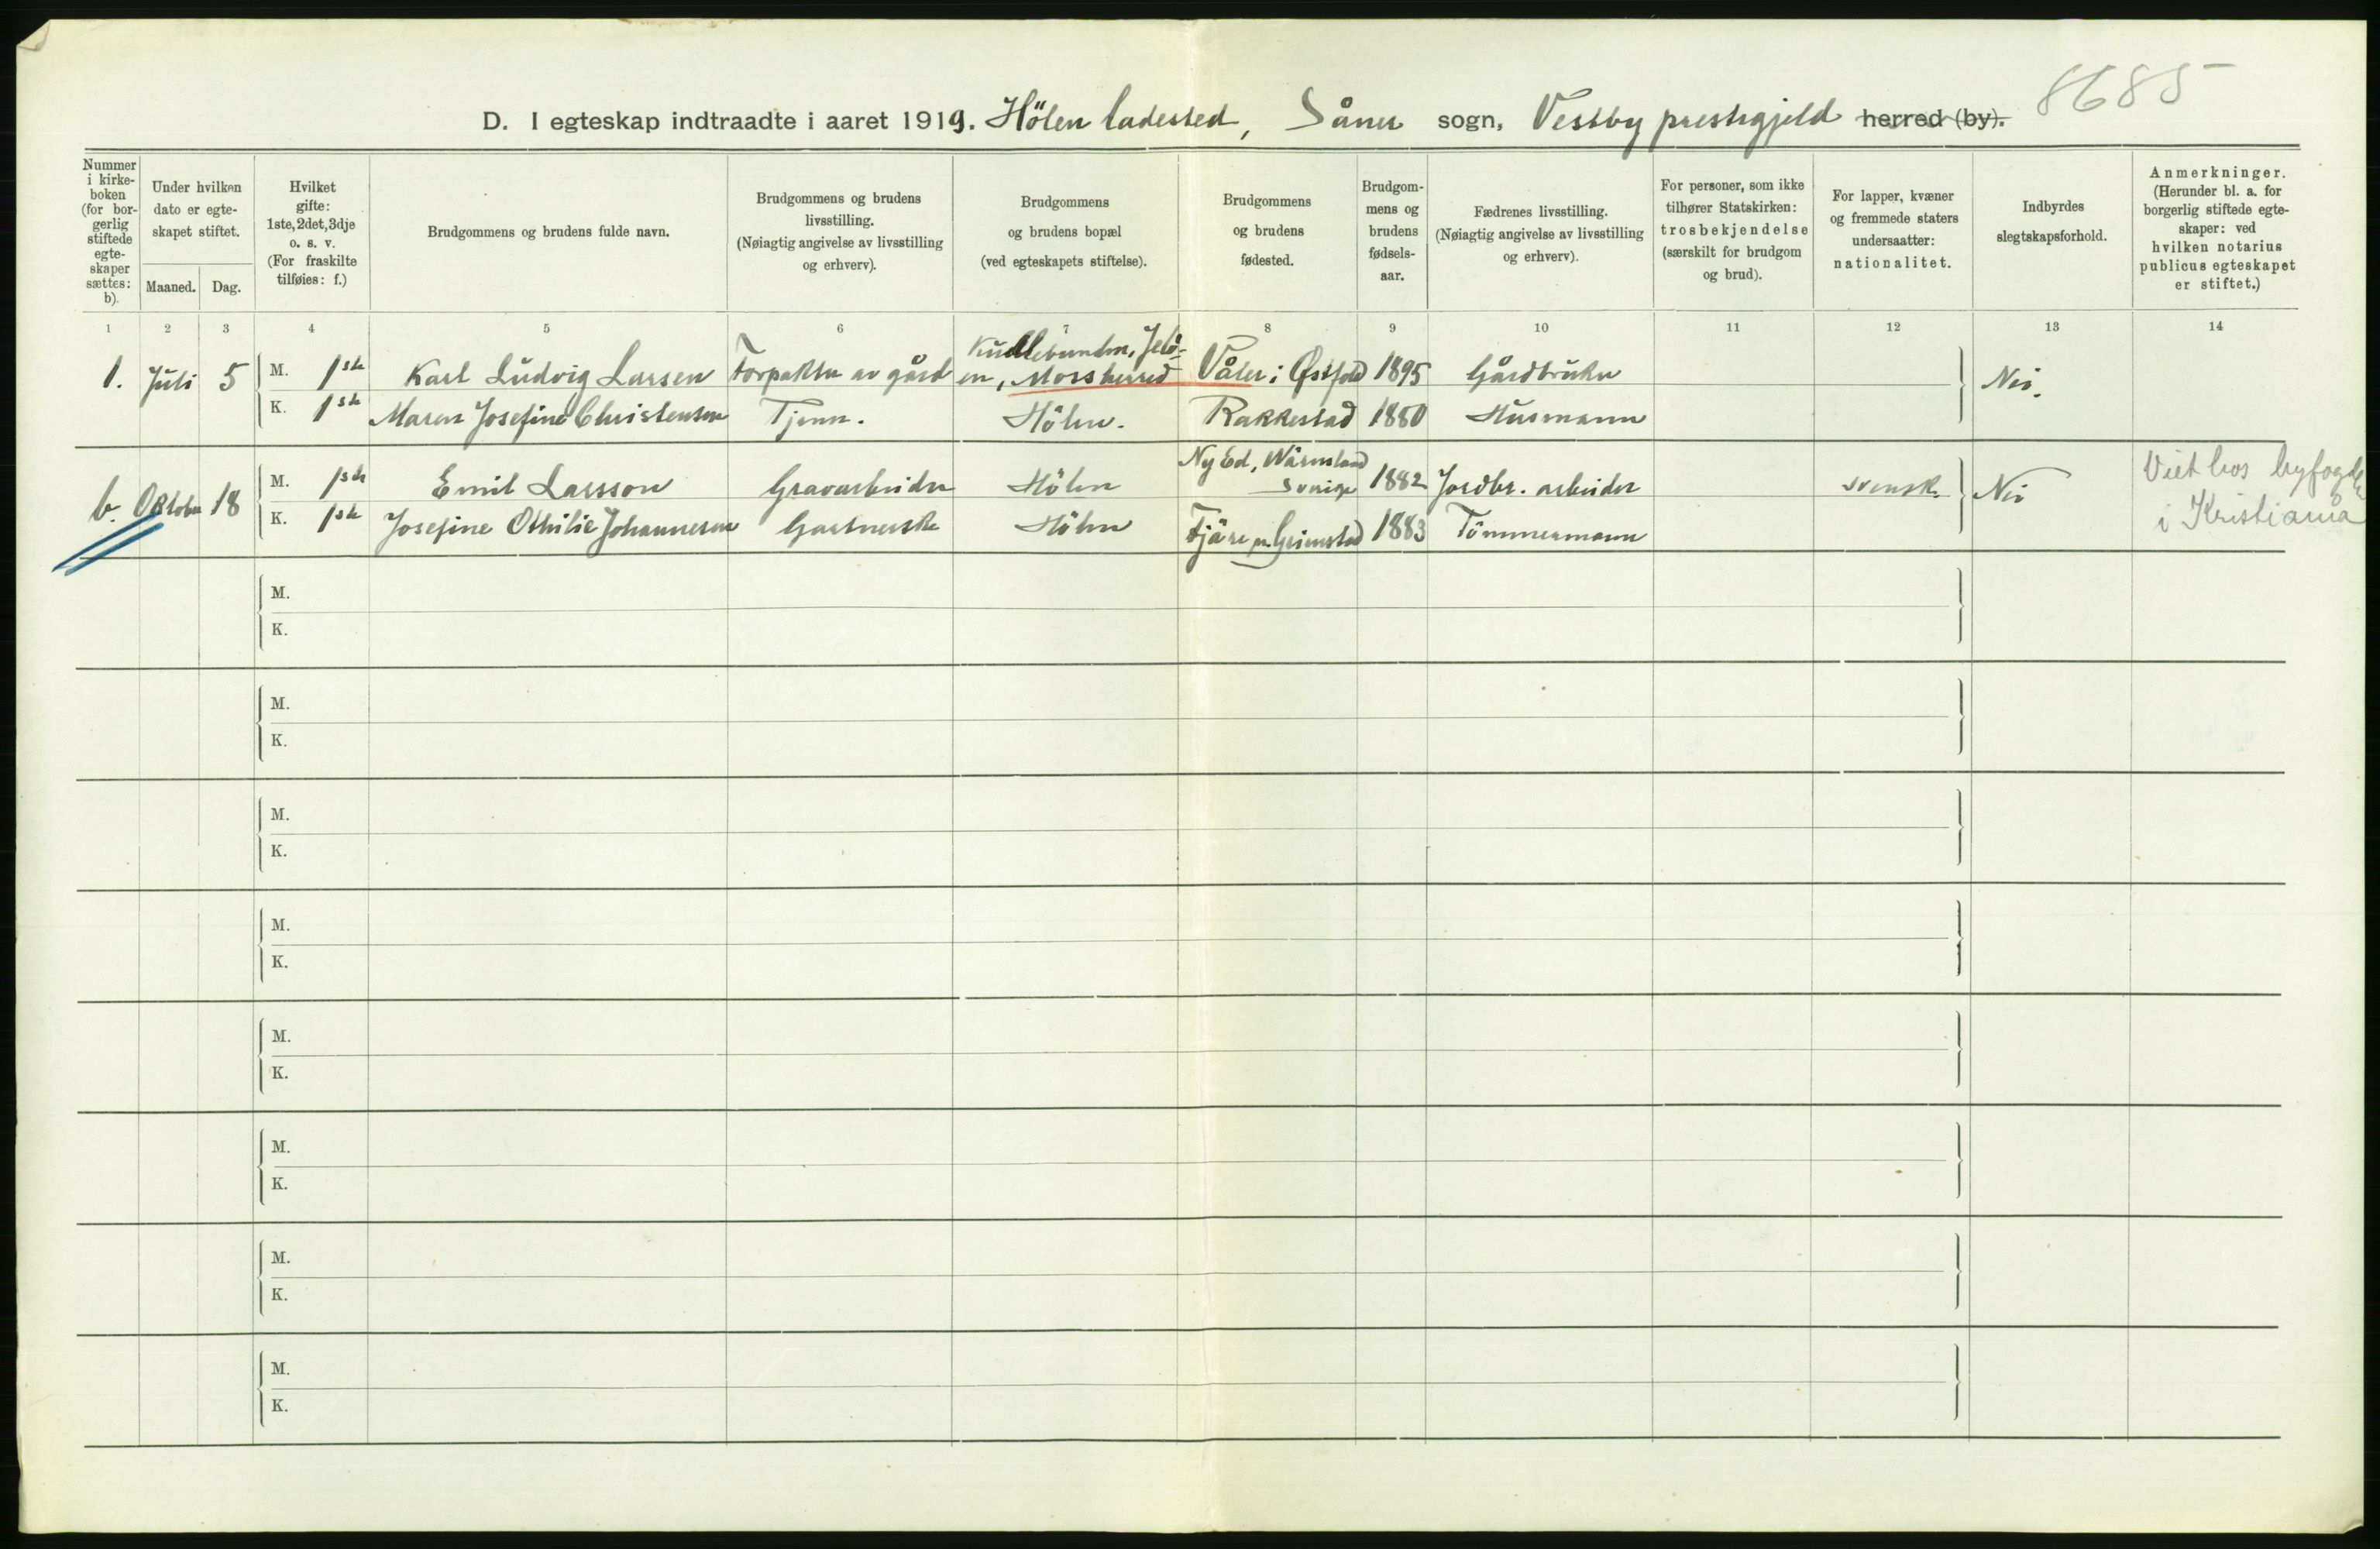 8685
D. I egteskap indtraadte i aaret 1919. Hölen ladested, Såner sogn, Vestby prestegjeld herred (by).
Nummer i kirkeboken (for borgerlig stiftede egteskaper sættes: b).
Under hvilken dato er egteskapet stiftet.
Maaned. Dag.
Hvilket gifte: 1ste, 2det, 3dje o. s. v. (For fraskilte tilføies: f.)
Brudgommens og brudens fulde navn.
Brudgommens og brudens livsstilling. (Nøiagtig angivelse av livsstilling og erhverv).
Brudgommens og brudens bopæl (ved egteskapets stiftelse).
Brudgommens og brudens fødested.
Brudgommens og brudens fødselsaar.
Fædrenes livsstilling. (Nøiagtig angivelse av livsstilling og erhverv).
For personer, som ikke tilhører Statskirken: trosbekjendelse (særskilt for brudgom og brud).
For lapper, kvæner og fremmede staters undersaatter: nationalitet.
Indbyrdes slegtskapsforhold.
Anmerkninger. (Herunder bl. a. for borgerlig stiftede egteskaper: ved hvilken notarius publicus egteskapet er stiftet.)
1 2 3 4 5 6 7 8 9 10 11 12 13 14
1. Juli 5 M. 1ste Karl Ludvig Larsen Forpakter av gård Kullebunden, Jelöen, Moss herred Våler i Østfold 1895 Gårdbruker Nei.
K. 1ste Maren Josefine Christensen Tjener. Hölen. Rakkestad 1880 Husmann
b. Oktober 18 M. 1ste Emil Larsson Gravarbeider Hölen Ny Ed, Wärmland Sverige 1882 Jordbr. arbeider svensk. Nei Viet hos byfogden i Kristiania
K. 1ste Josefine Othilie Johannesen Gartnerske Hölen Fjäre pr. Grimstad 1883 Tömmermann
M.
K.
M.
K.
M.
K.
M.
K.
M.
K.
M.
K.
M.
K.
M.
K.